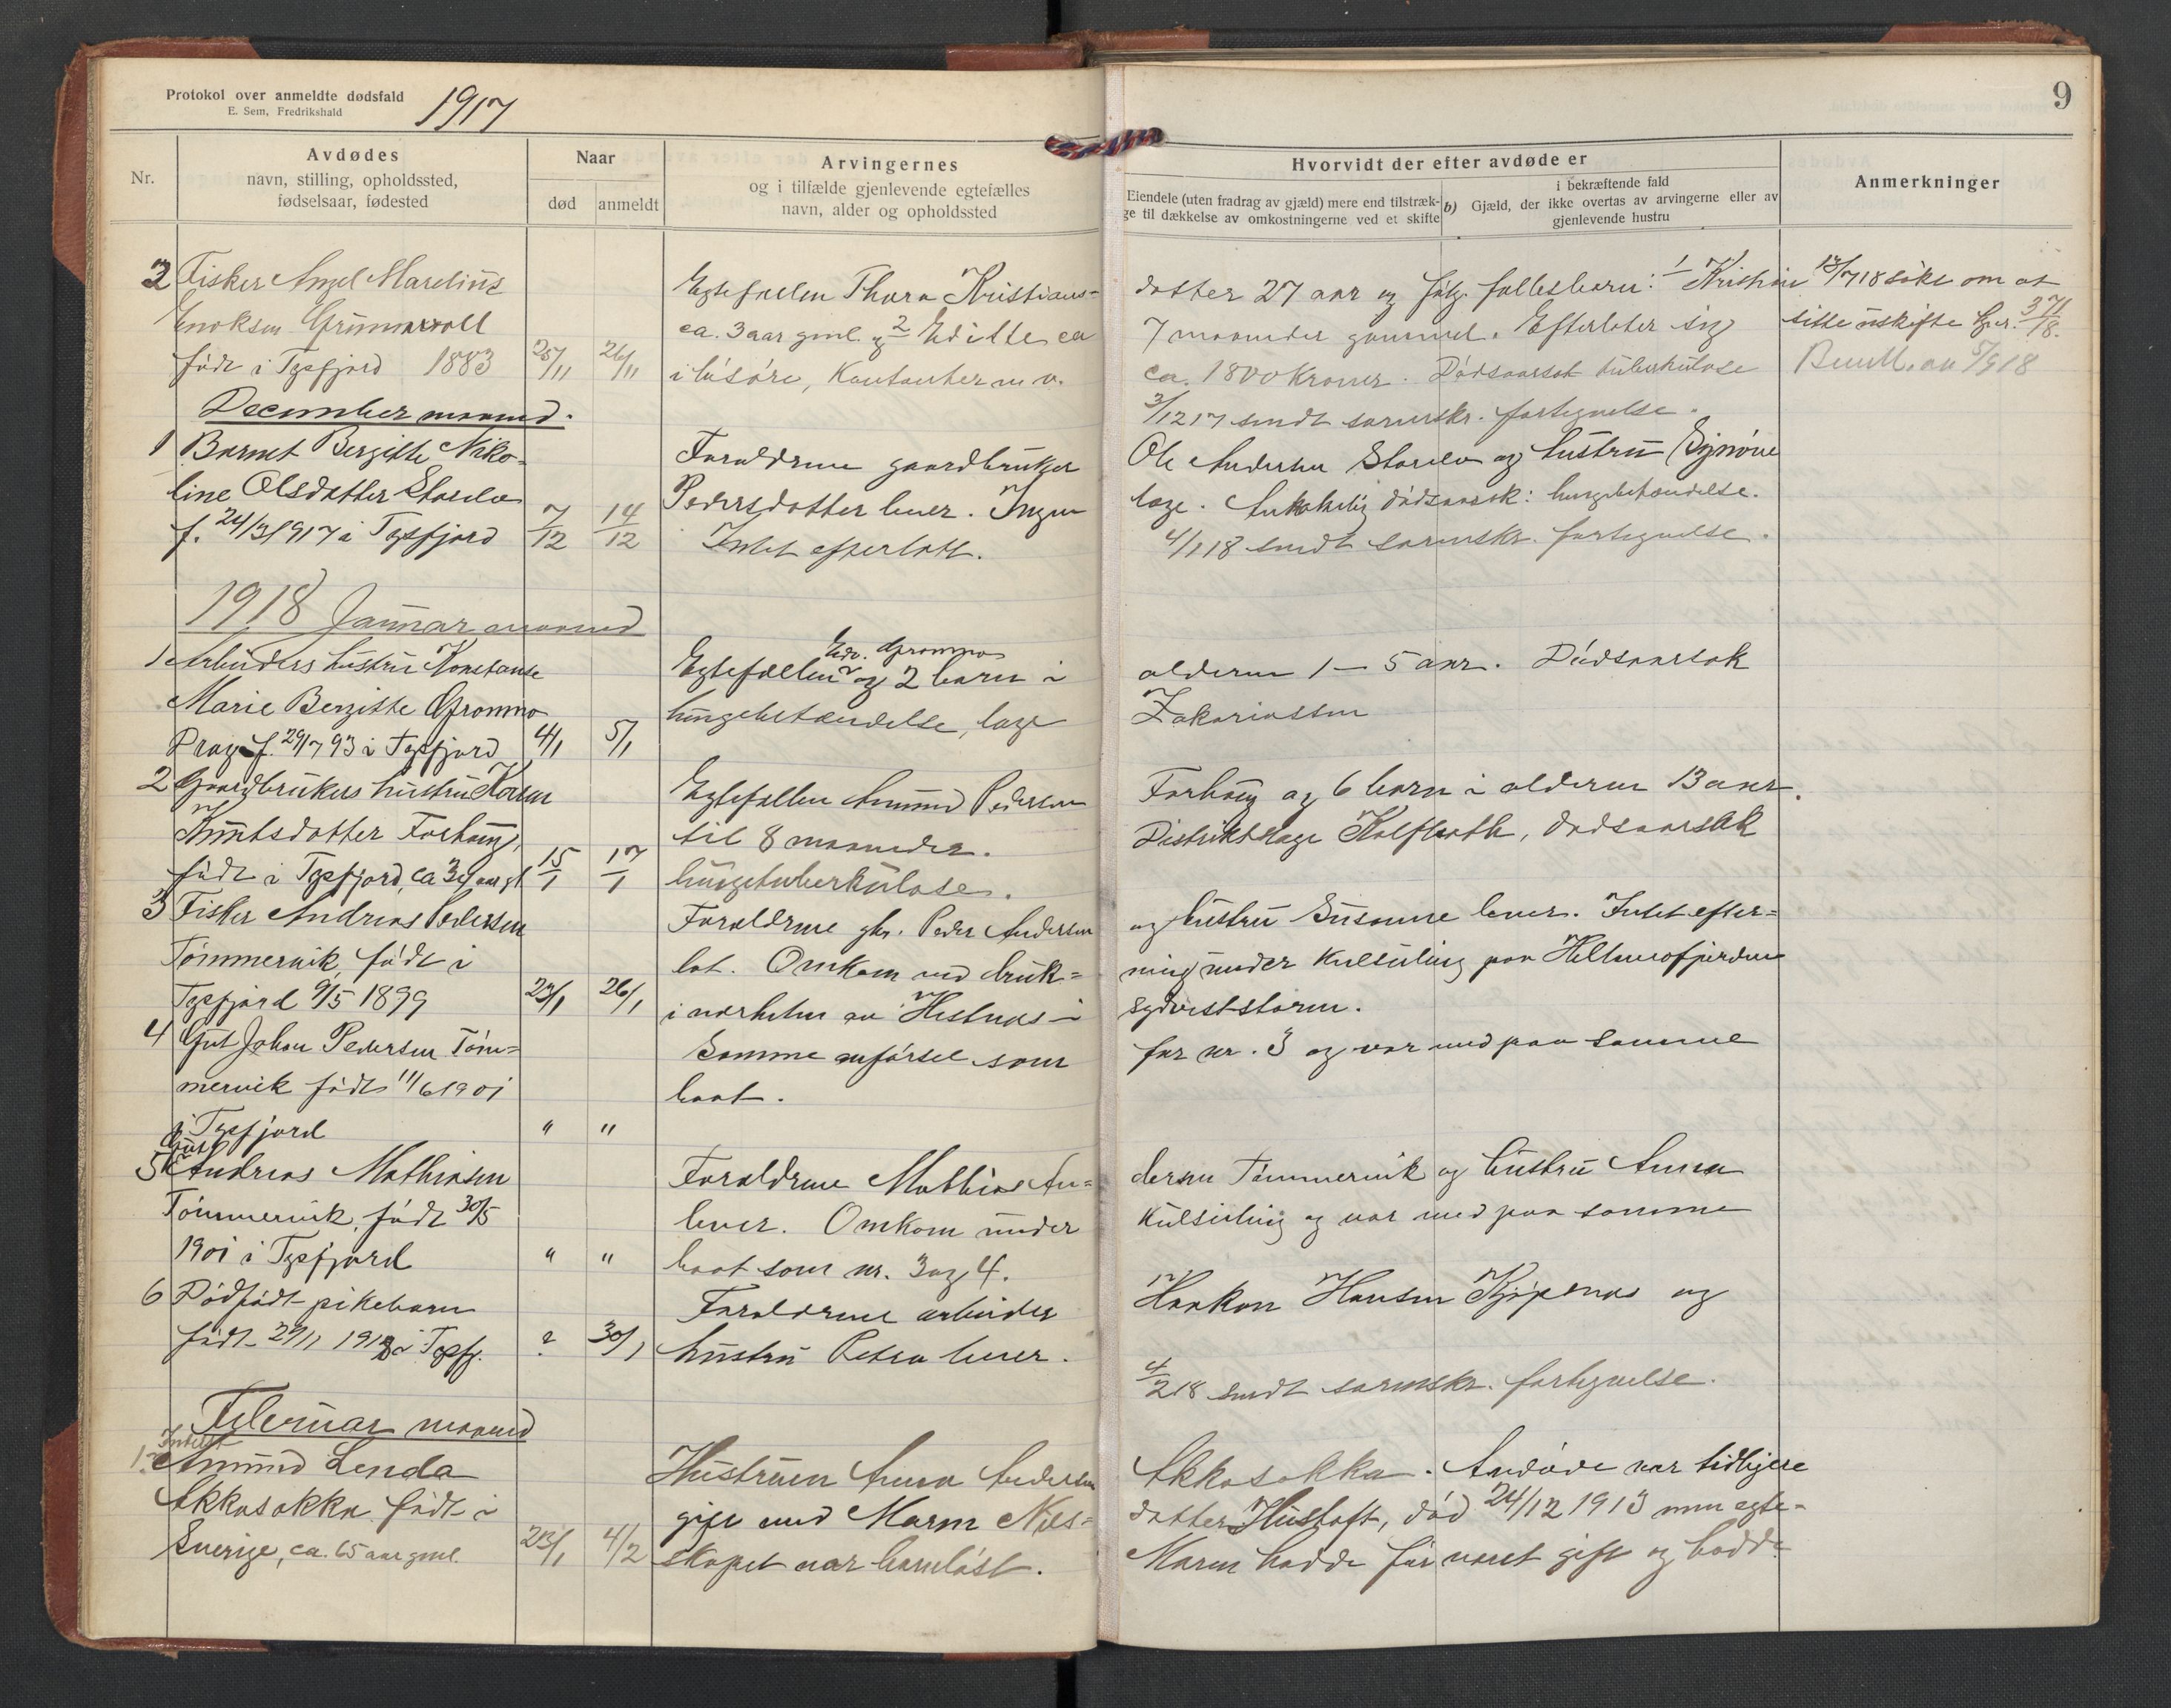 Protokol over anmeldte dødsfald
E. Sem, Fredrikshald
1917
9
Nr.
Avdødes
navn, stilling, opholdssted,
fødselsaar, fødested
Naar
død
anmeldt
Arvingernes
og i tilfælde gjenlevende egtefælles
navn, alder og opholdssted
Hvorvidt der efter avdøde er
Eiendele (uten fradrag av gjæld) mere end tilstræk-
ge til dækkelse av omkostningerne ved et skifte
b)
i bekræftende fald
Gjæld, der ikke overtas av arvingerne eller av
gjenlevende hustru
Anmerkninger
2 Fisker Angel Marelius
Enoksen Grunnvoll
født i Tysfjord 1883 25/11 26/11
Egtefællen Thora Kristians- datter 27 aar og følg. fellesbarn: 1/ Kristian
ca. 3 aar gml. og 2/ Editte ca 7 maaneder gammel. Efterlater sig
i løsøre, Kontanter m v. ca. 1800 Kroner. Dødsaarsak tuberkulose
3/12 17 sendt sorenskr. fortegnelse.
13/7 18 søkt om at
sitte i uskifte
5/9 18
December maaned.
1 Barnet Bergitte Niko-
line Olsdatter Storelv
f. 24/3 1917 i Tysfjord 7/12 14/12
Forældrene gaardbruker Ole Andersen Storelv og hustru Synnøve
Pedersdatter lever. Ingen læge. Antakelig dødsaarsak: lungebetændelse.
Intet efterlatt. 4/1 18 sendt sorenskr. fortegnelse.
1918 Januar maaned
1 Arbeiders hustru Konstanse
Marie Bergitte Grønmo
Drag f. 29/7 93 i Tysfjord 4/1 5/1
Edv. Grønmo
Egtefællen og 2 barn i alderen 1 – 5 aar. Dødsaarsak
lungebetændelse, læge Zakariassen
2 Gaardbrukers hustru Karen
Knutsdatter Forhaug,
født i Tysfjord, ca 34 aar gl 15/1 17/1
Egtefællen Amund Pedersen Forhaug og 6 barn i alderen 13 aar.
til 8 maaneder. Distriktslæge Kolflaath, dødsaarsak
lungetuberkulose.
3 Fisker Andreas Pedersen
Tømmervik, født i
Tysfjord 9/5 1899 23/1 26/1
Forældrene gbr. Peder Andersen og hustru Susanne lever. Intet efter=
lat. Omkom ved druk= ning under kulseiling paa Hellemofjorden
i nærheten av Hestnes i sydvest-storm.
4 Gut Johan Pedersen Tøm=
mervik født 11/6 1901
i Tysfjord " "
Samme anførsel som for nr. 3 og var med paa samme
baat.
5 Gut Andreas Mathiasen
Tømmervik, født 30/5
1901 i Tysfjord " "
Forældrene Mathias An= dersen Tømmervik og hustru Anna
lever. Omkom under kulseiling og var med paa samme
baat som nr. 3 og 4.
6 Dødfødt pikebarn
født 29/1 1918 i Tysfj. ? 30/1
Forældrene arbeider Haakon Hansen Kjøpsnes og
hustru Petra lever.
4/2 18 sendt sorenskr. fortegnelse.
Februar maaned
1. Amund Lenda
Akkasokka født i
Sverige, ca. 65 aar gml. 23/1 4/2
Hustruen Anna Andersen Akkasokka. Avdøde var tidligere
gift med Maren Nils= datter Hustoft, død 24/12 1913 men egte-
skapet var barnløst. Maren hadde før været gift og hadde